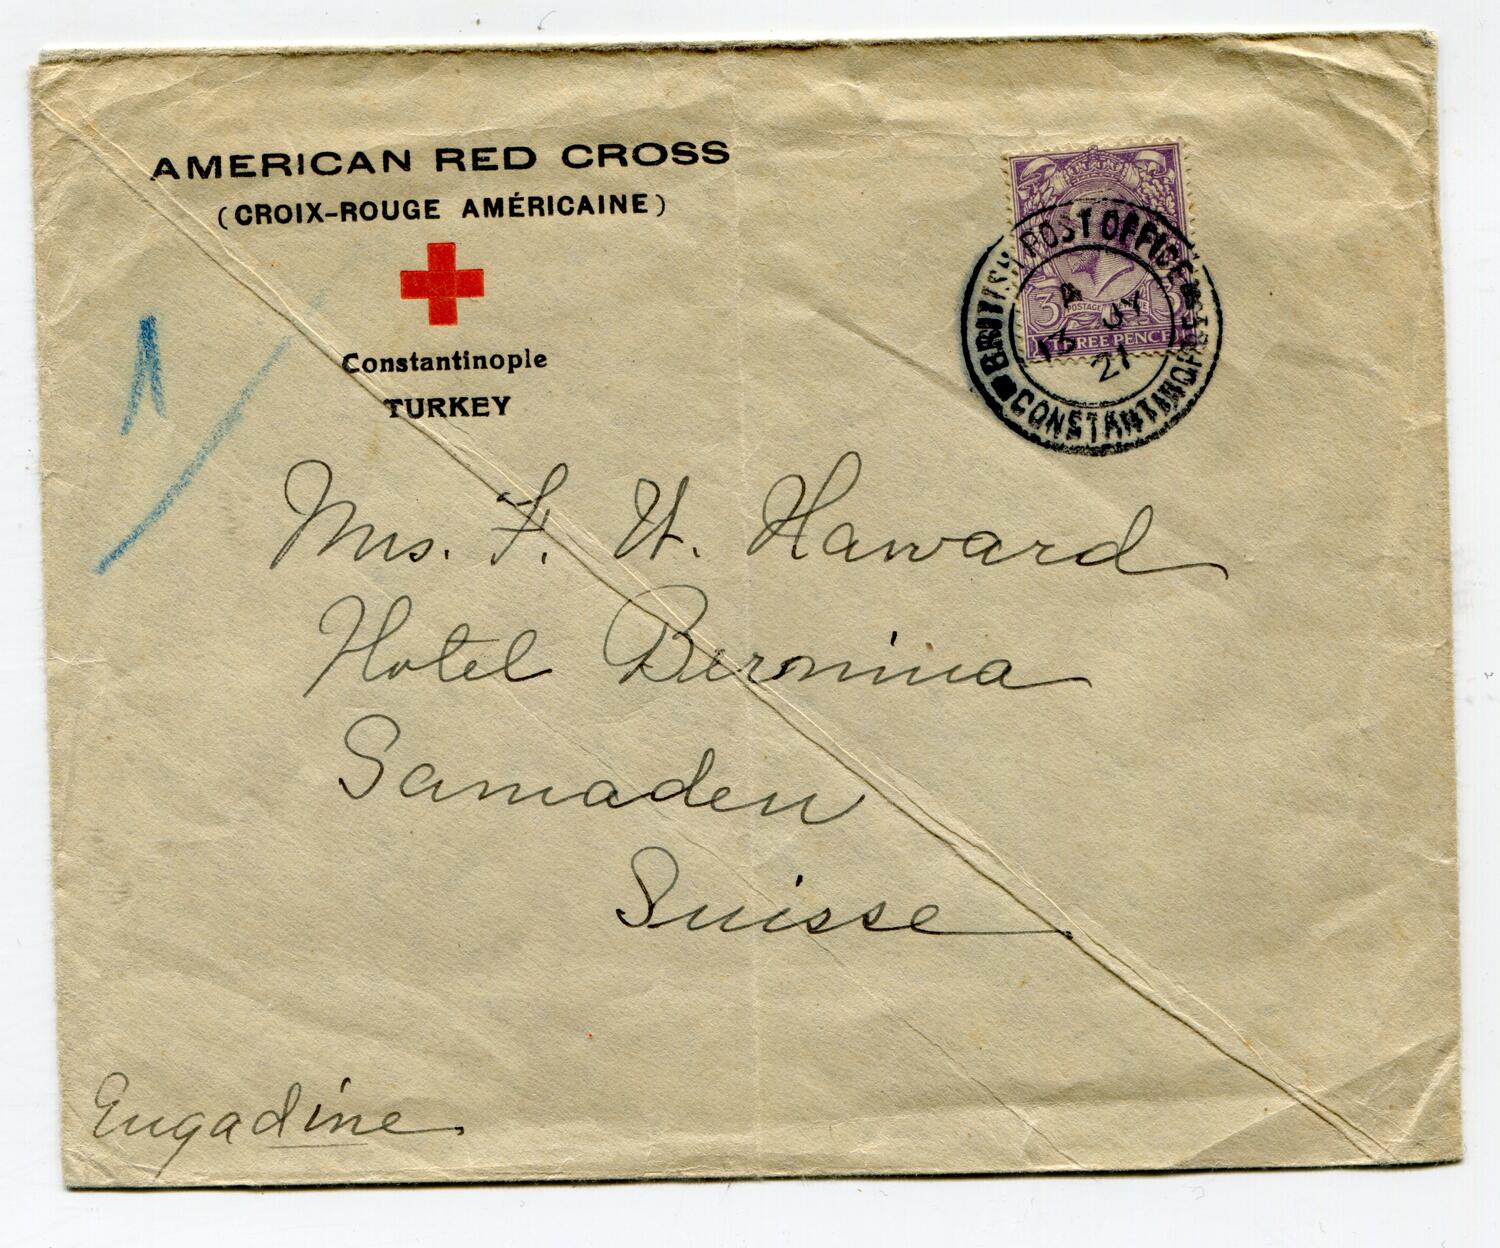 AMERICAN RED CROSS
(CROIX-ROUGE AMÉRICAINE)
Constantinople
TURKEY
BRITISH POST OFFICE
A
13 JY
21
CONSTANTINOPLE
3 POSTAGE
THREE PENCE
1
Mrs. F. W. Haward
Hotel Bernina
Samaden
Suisse
Engadine